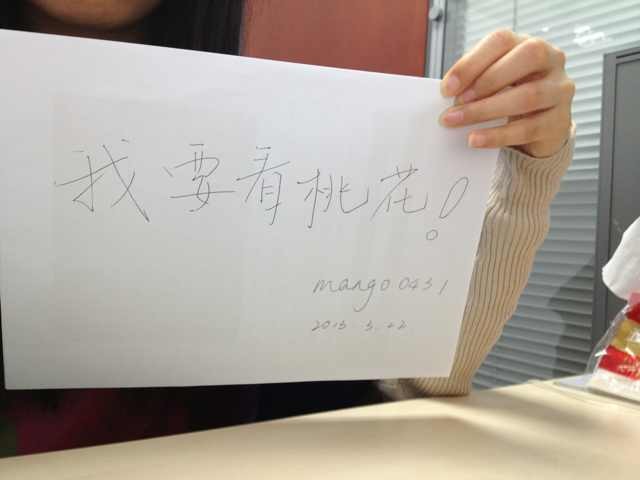 我要看桃花!
mango0431
2013.3.22